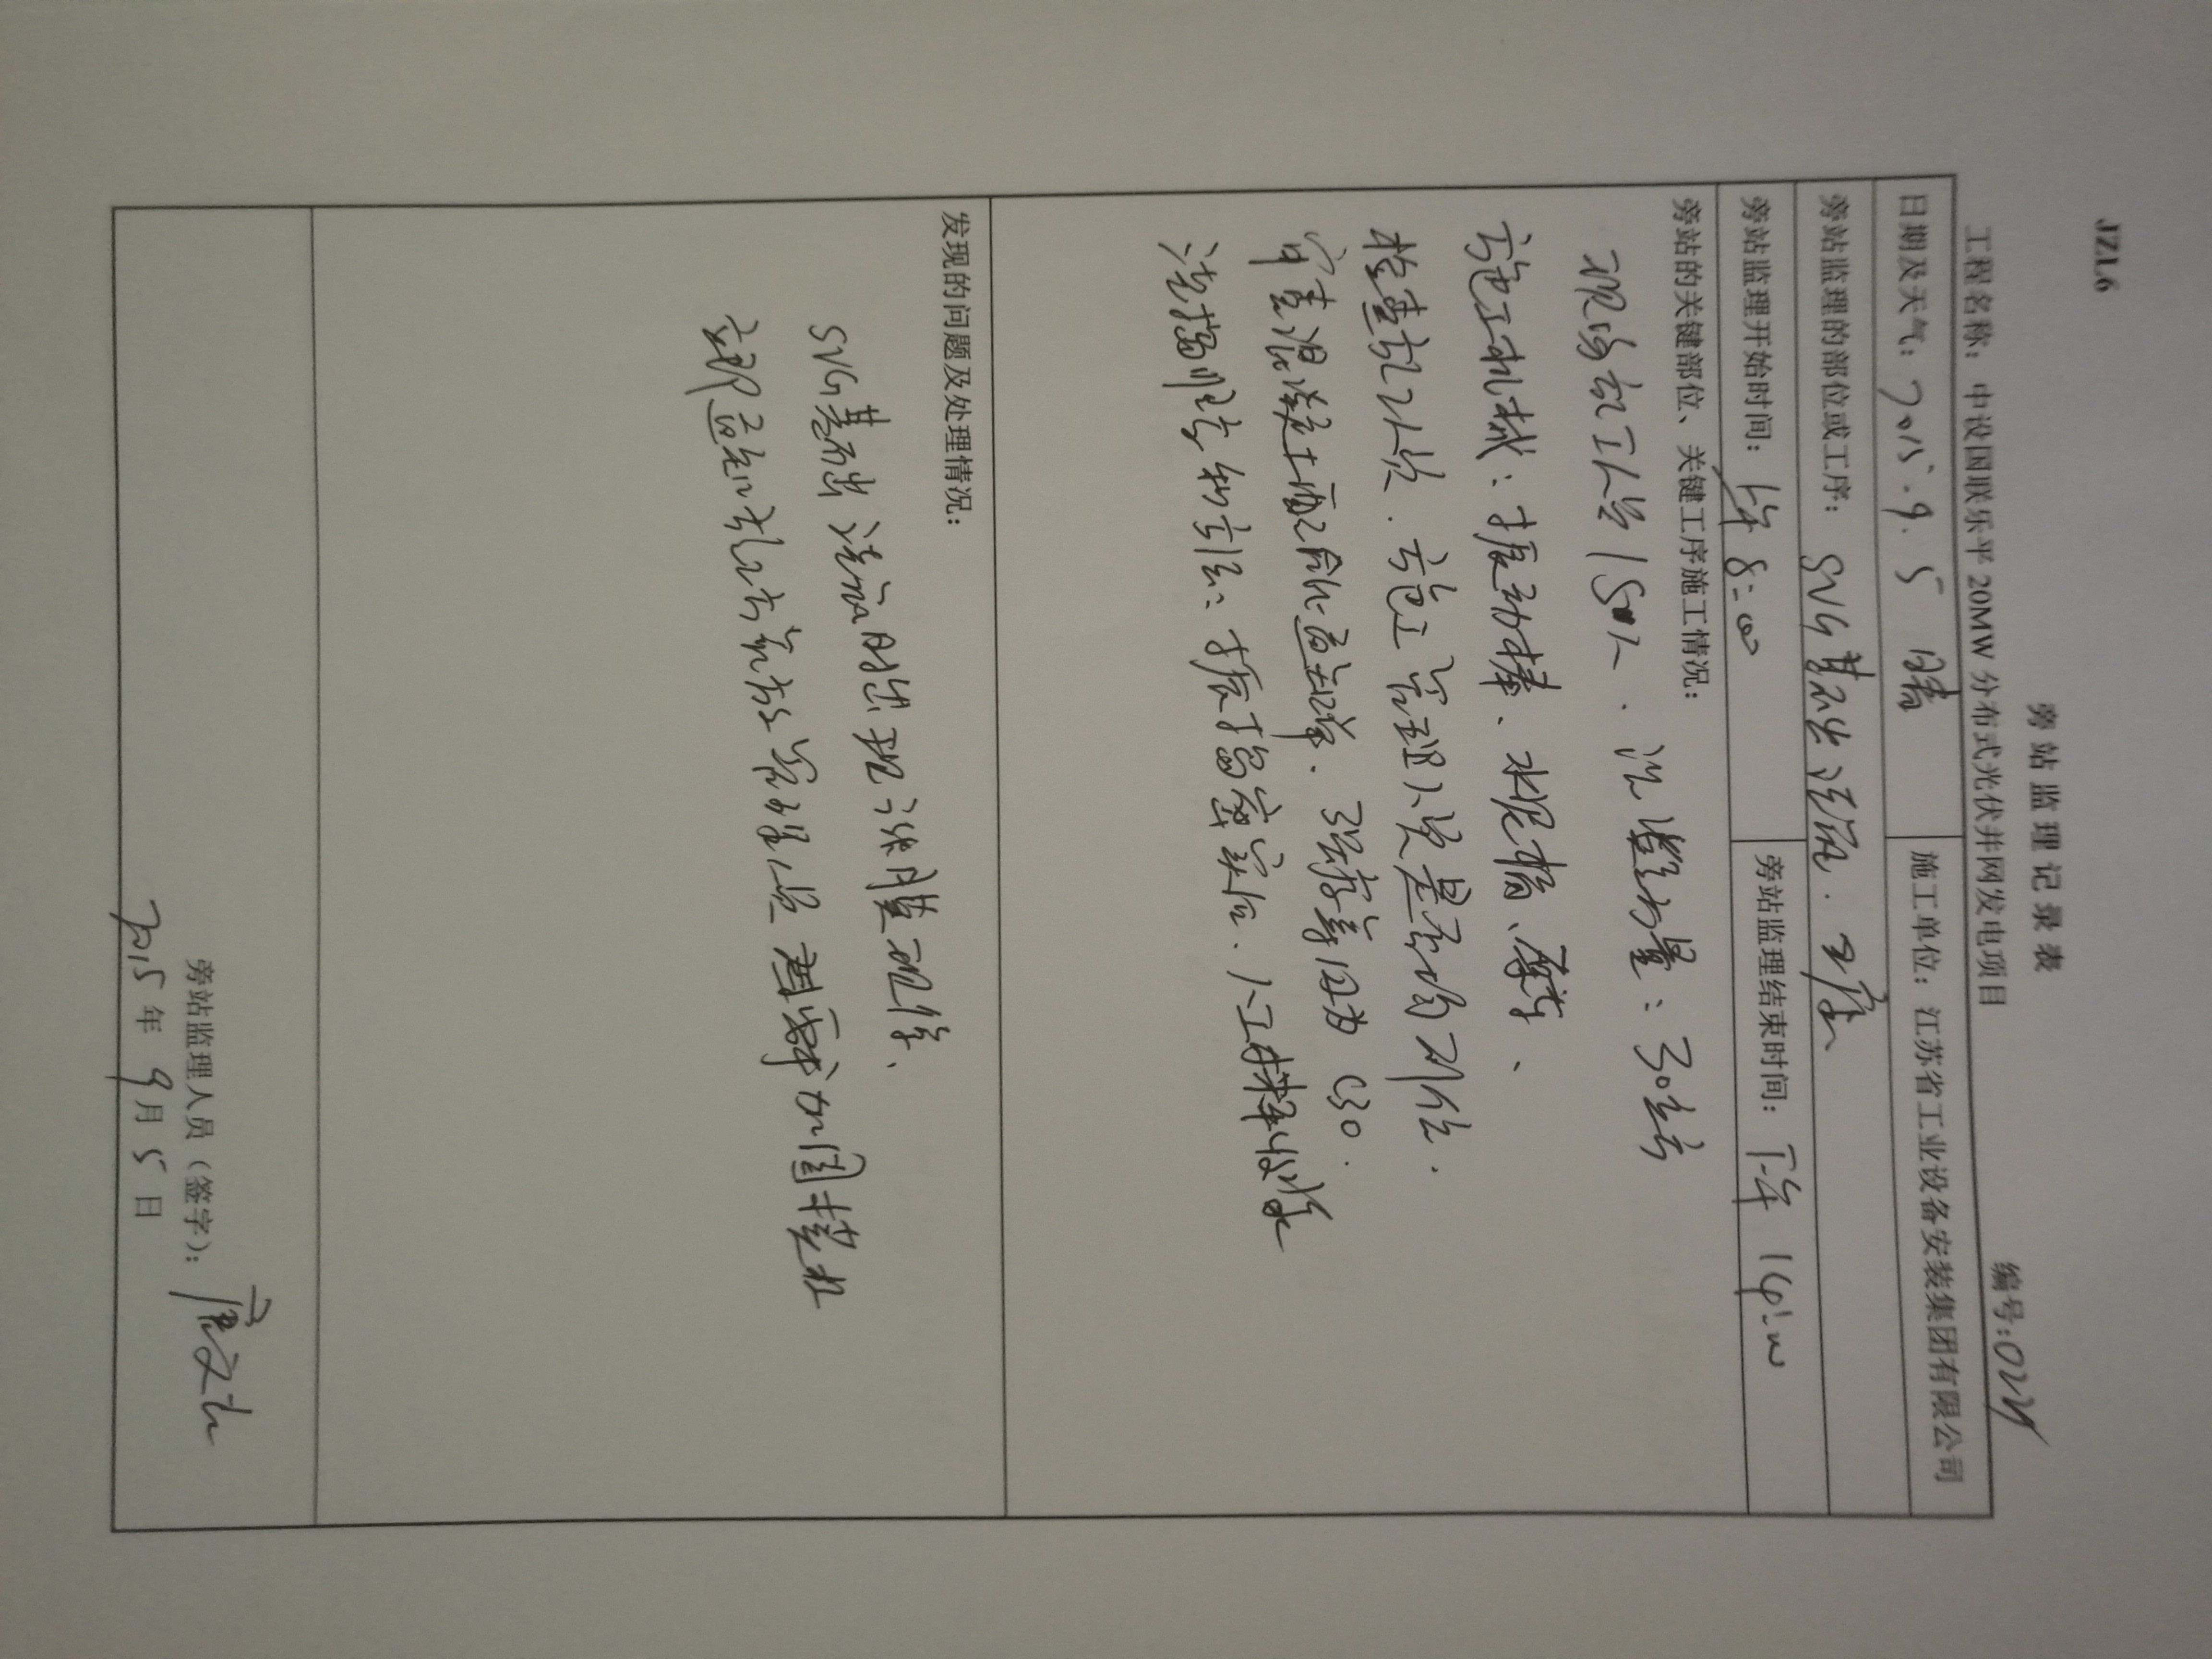 JZL6
旁站监理记录表
编号:024
工程名称：中设国联乐平20MW分布式光伏并网发电项目
日期及天气：2015.9.5 晴 施工单位：江苏省工业设备安装集团有限公司
旁站监理的部位或工序：SVG基础浇砼.工序
旁站监理开始时间：上午8:00 旁站监理结束时间：下午14:00
旁站的关键部位、关键工序施工情况：
现场施工人员15人、混凝数量：30立方
施工机械：振动棒、水泥搅、等、
检查施工人员.施工管理人员是否均到位.
审查混凝土配合比通知单.强度等级为C30.
浇捣顺序和方法：振捣密实后.人工抹平收浆
发现的问题及处理情况：
SVG基础浇砼时出现涨膜现象、
立即通知施工方管理人员再次加固模板
旁站监理人员（签字）：
2015年9月5日